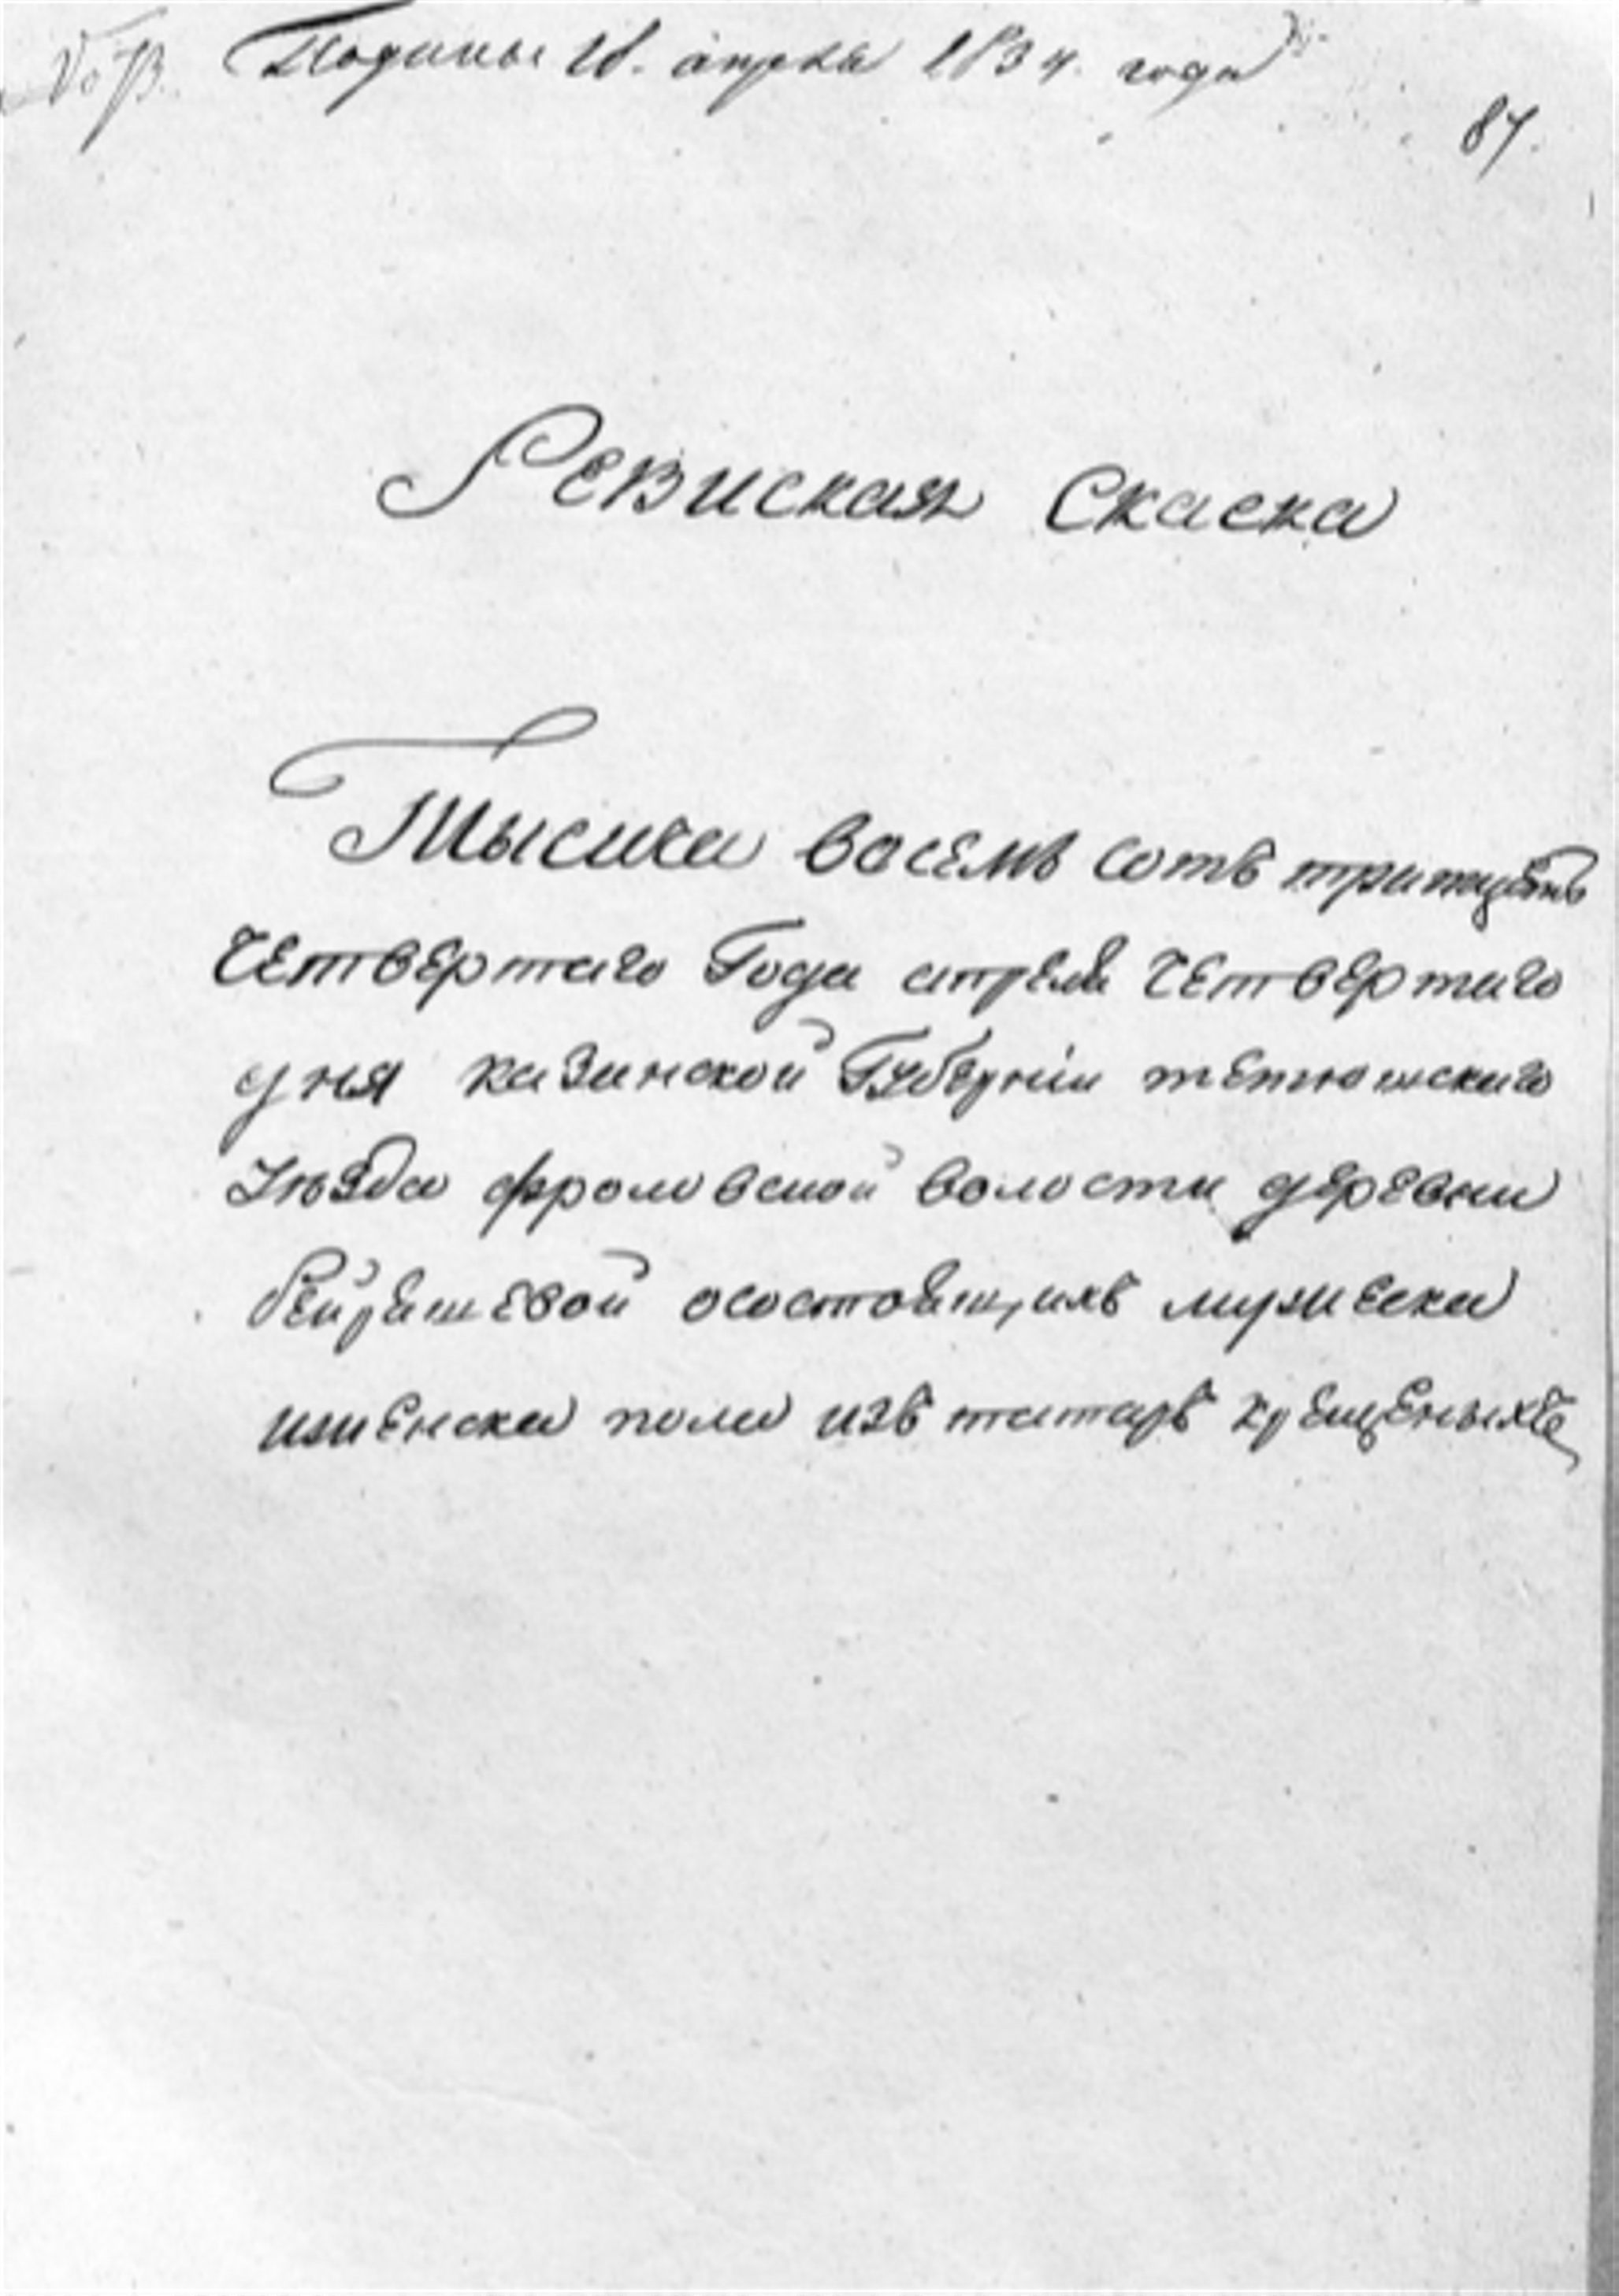 Подины 18. апреля 1834. года
87.
Ревиская Скаска
Тысяча восемь сотъ тритцать
Четвертаго Года апреля Четвертаго
дня казанской Губерніи тетюшскаго
Уѣзда фроловской волости деревни
бейрашевой осостоящихъ мужеска
иженска пола изъ татаръ крещеныхъ